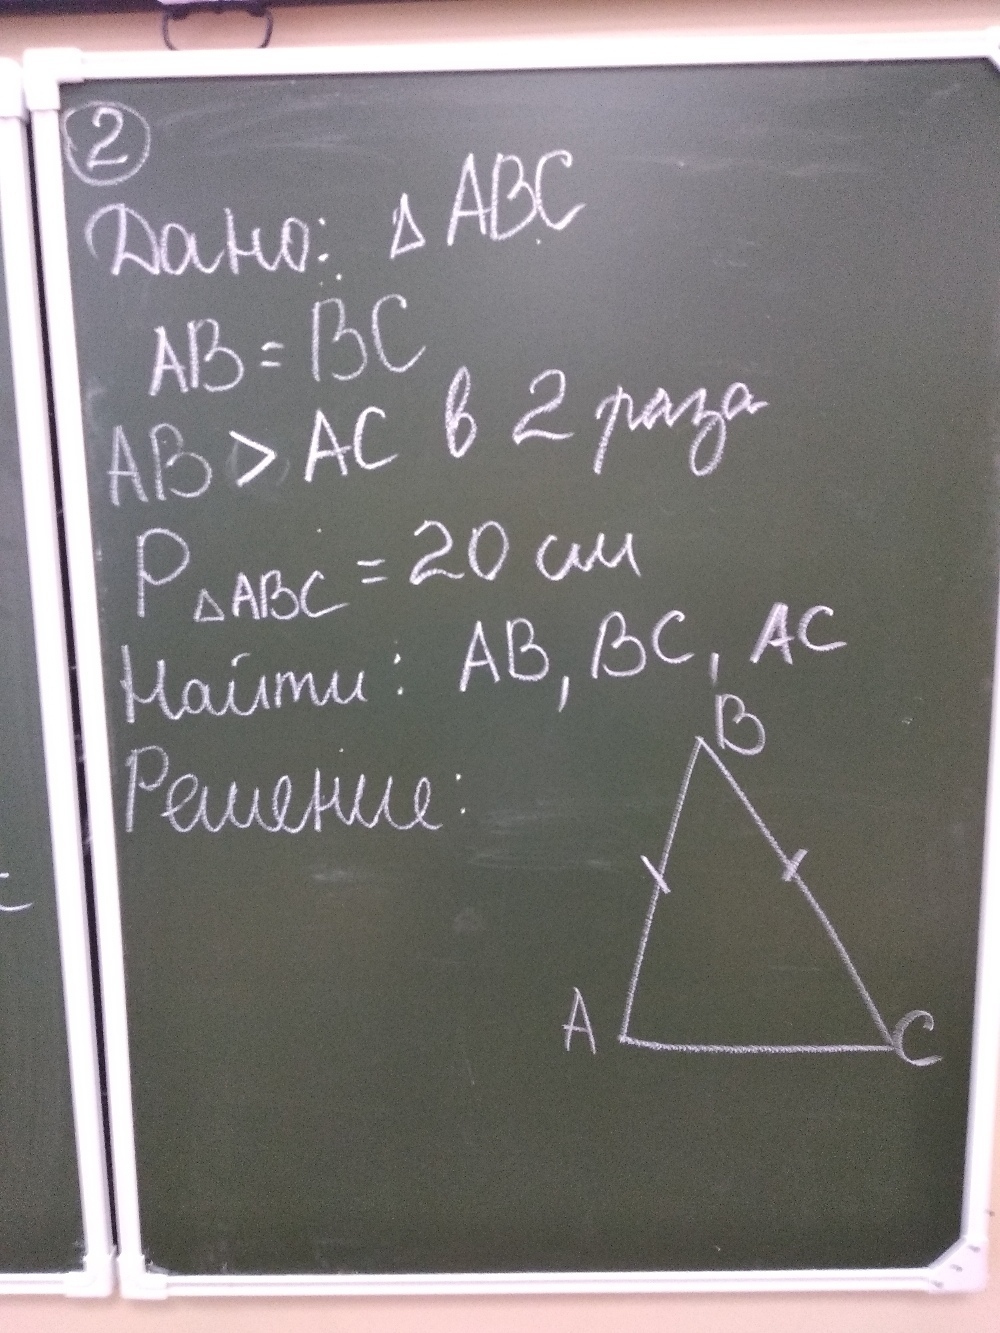 2
Дано: Δ ABC
AB = BC
AB > AC в 2 раза
P ΔABC = 20 см
Найти: AB, BC, AC
Решение:
B
A
C